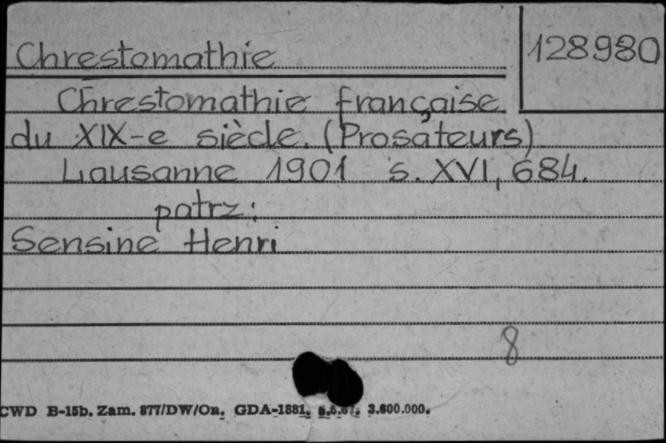 Chrestomathie
128980
Chrestomathie française
du XIX-e siècle. (Prosateurs)
Lausanne 1901 s. XVI, 684.
patrz:
Sensine Henri
8
CWD B-15b. Zam. 877/DW/On. GDA-1881. 3.600.000.